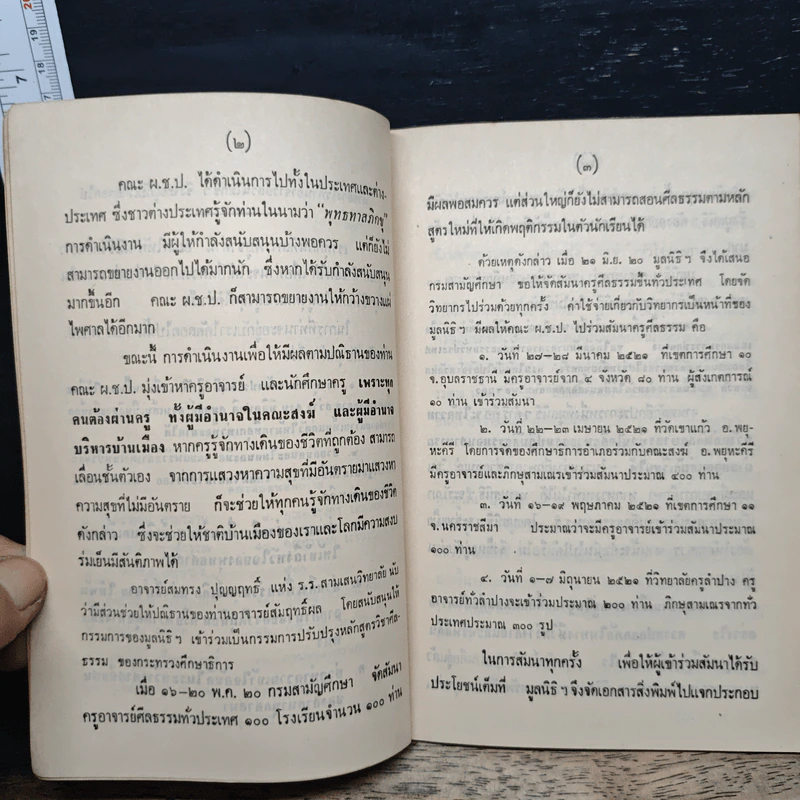 (๒)
คณะ ผ.ช.ป. ได้ดำเนินการไปทั้งในประเทศและต่าง-
ประเทศ ซึ่งชาวต่างประเทศรู้จักท่านในนามว่า "พุทธทาสภิกขุ"
การดำเนินงาน มีผู้ให้กำลังสนับสนุนบ้างพอควร แต่ก็ยังไม่
สามารถขยายงานออกไปได้มากนัก ซึ่งหากได้รับกำลังสนับสนุน
มากขึ้นอีก คณะ ผ.ช.ป. ก็สามารถขยายงานให้กว้างขวางแผ่
ไพศาลได้อีกมาก
ขณะนี้ การดำเนินงานเพื่อให้มีผลตามปณิธานของท่าน
คณะ ผ.ช.ป. มุ่งเข้าหาครูอาจารย์ และนักศึกษาครู เพราะทุก
คนต้องผ่านครู ทั้งผู้มีอำนาจในคณะสงฆ์ และผู้มีอำนาจ
บริหารบ้านเมือง หากครูรู้จักทางเดินของชีวิตที่ถูกต้อง สามารถ
เลื่อนชั้นตัวเอง จากการแสวงหาความสุขที่มีอันตรายมาแสวงหา
ความสุขที่ไม่มีอันตราย ก็จะช่วยให้ทุกคนรู้จักทางเดินของชีวิต
ดังกล่าว ซึ่งจะช่วยให้ชาติบ้านเมืองของเราและโลกมีความสงบ
ร่มเย็นมีสันติภาพได้
อาจารย์สมทรง ปุญญฤทธิ์ แห่ง ร.ร. สามเสนวิทยาลัย นับ
ว่ามีส่วนช่วยให้ปณิธานของท่านอาจารย์สัมฤทธิ์ผล โดยสนับสนุนให้
กรรมการของมูลนิธิ ฯ เข้าร่วมเป็นกรรมการปรับปรุงหลักสูตรวิชาศีล-
ธรรม ของกระทรวงศึกษาธิการ
เมื่อ ๑๖-๒๐ พ.ค. ๒๐ กรมสามัญศึกษา จัดสัมนา
ครูอาจารย์ศีลธรรมทั่วประเทศ ๑๐๐ โรงเรียนจำนวน ๑๐๐ ท่าน
(๓)
มีผลพอสมควร แต่ส่วนใหญ่ก็ยังไม่สามารถสอนศีลธรรมตามหลัก
สูตรใหม่ที่ให้เกิดพฤติกรรมในตัวนักเรียนได้
ด้วยเหตุดังกล่าว เมื่อ ๒๑ มิ.ย. ๒๐ มูลนิธิ ฯ จึงได้เสนอ
กรมสามัญศึกษา ขอให้จัดสัมนาครูศีลธรรมขึ้นทั่วประเทศ โดยจัด
วิทยากรไปร่วมด้วยทุกครั้ง ค่าใช้จ่ายเกี่ยวกับวิทยากรเป็นหน้าที่ของ
มูลนิธิ ฯ มีผลให้คณะ ผ.ช.ป. ไปร่วมสัมนาครูศีลธรรม คือ
๑. วันที่ ๒๗-๒๘ มีนาคม ๒๕๒๑ ที่เขตการศึกษา ๑๐
จ.อุบลราชธานี มีครูอาจารย์จาก ๔ จังหวัด ๘๐ ท่าน ผู้สังเกตการณ์
๑๐ ท่าน เข้าร่วมสัมนา
๒. วันที่ ๒๒-๒๓ เมษายน ๒๕๒๑ ที่วัดเขาแก้ว อ.พยุ-
หะคีรี โดยการจัดของศึกษาธิการอำเภอร่วมกับคณะสงฆ์ อ.พยุหะคีรี
มีครูอาจารย์และภิกษุสามเณรเข้าร่วมสัมนาประมาณ ๔๐๐ ท่าน
๓. วันที่ ๑๖-๑๙ พฤษภาคม ๒๕๒๑ ที่เขตการศึกษา ๑๑
จ.นครราชสีมา ประมาณว่าจะมีครูอาจารย์เข้าร่วมสัมนาประมาณ
๑๐๐ ท่าน
๔. วันที่ ๑-๗ มิถุนายน ๒๕๒๑ ที่วิทยาลัยครูลำปาง ครู
อาจารย์ทั่วลำปางจะเข้าร่วมประมาณ ๒๐๐ ท่าน ภิกษุสามเณรจากทั่ว
ประเทศประมาณ ๓๐๐ รูป
ในการสัมนาทุกครั้ง เพื่อให้ผู้เข้าร่วมสัมนาได้รับ
ประโยชน์เต็มที่ มูลนิธิ ฯ จึงจัดเอกสารสิ่งพิมพ์ไปแจกประกอบ